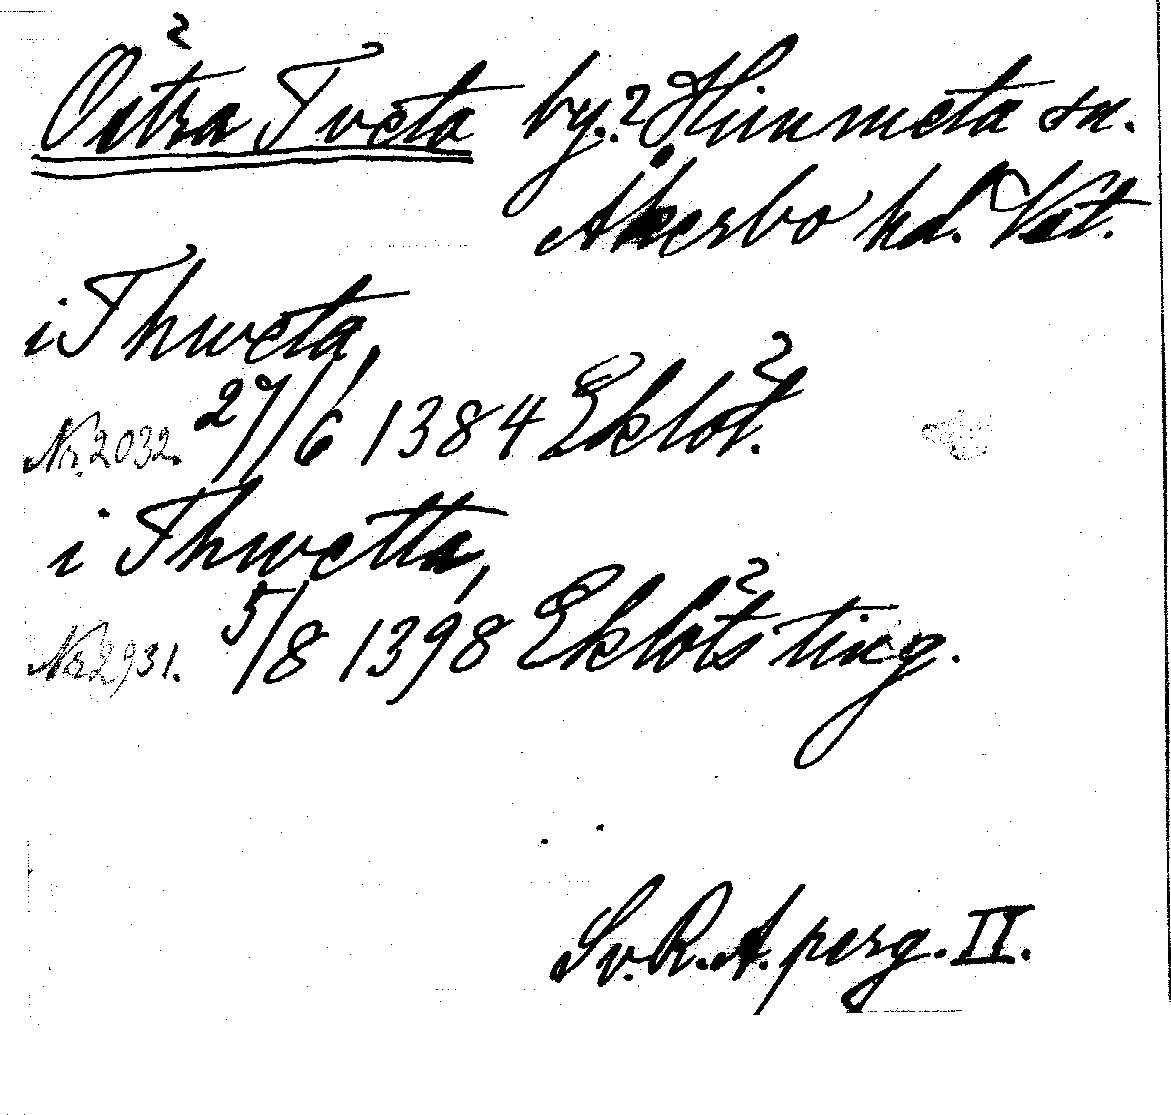 Östra Tveta by.? Himmeta sn.
Åkerbo hd. Vst.
i Thweta,
Nr. 2032. 27/6 1384 Eklöt.
i Thwetta,
Nr. 2931. 5/8 1398 Eklöts ting.
Sv. R. A. perg. II.